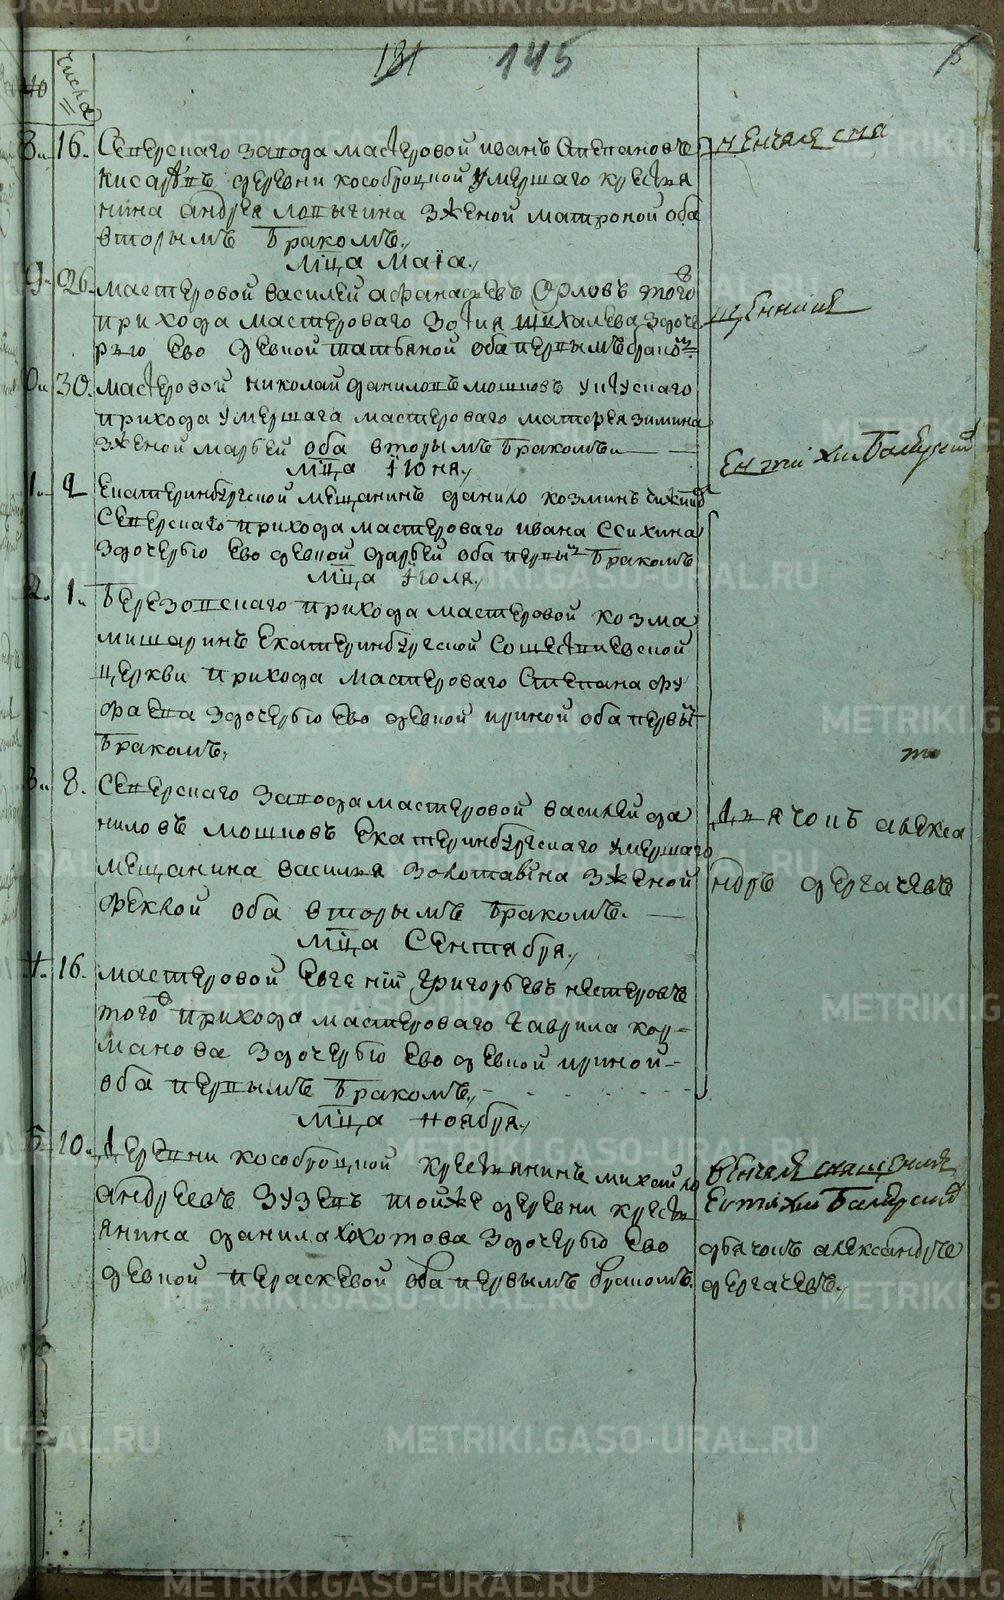 131 145
числа
8. 16. Северскаго завода мастеровой иванъ Степановъ
кисаревъ деревни кособродцкой умершаго крестья
нина андрея лопычина зженой матроной оба
вторымъ бракомъ.
Мца Маїа.
9. 26. мастеровой василей афанасьевъ Орловъ того
прихода мастероваго зотия михалева здоче
рью ево девкой татьяной оба первымъ бракомъ
30. мастеровой николай даниловъ мошковъ уктускаго
прихода умершага мастероваго матфея зимина
зженой марьей оба вторымъ бракомъ
Мца їюня.
1. 2 Екатеринбургской мещанинъ данило козминъ
Северскаго прихода мастероваго ивана
здочерью ево девкой дарьей оба первы бракомъ
Мца їюля.
2. 1. Березовскаго прихода мастеровой козма
мишаринъ Екатеринбургской Сошествиевской
церкви прихода мастероваго Степана фу
фаева здочерью ево девкой ириной оба первы
бракомъ.
3. 8. Северскаго завода мастеровой василей да
ниловъ мошковъ Екатеринбургскаго умершаго
мещанина василья золотавина зженой
феклой оба вторымъ бракомъ.
Мца Сентября.
4. 16. мастеровой Евгений григорьевъ нестеровъ
того прихода мастероваго гаврила кор-
манова здочерью ево девкой ириной-
оба первымъ бракомъ.
Мца ноября.
5. 10. Деревни кособродцкой крестьянинъ михайло
андреевъ зузевъ тойже деревни кресть
янина данила хохотова здочерью ево
девкой параскевой оба первымъ бракомъ.
венчал свя
щенникъ
Евтихий
то
Дьячокъ алекса
ндръ дергачевъ
венчал священникъ
Евтихий
дьячокъ александръ
дергачевъ.
METRIKI.GASO-URAL.RU